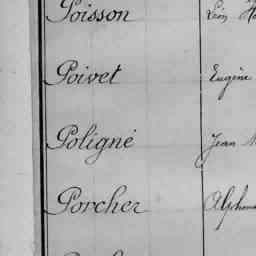 Poisson Léon
Poivet Eugène
Poligné Jean
Porcher Alphons